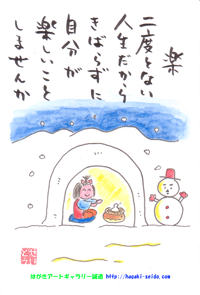 楽
二度とない
人生だから
きばらずに
自分が
楽しいこと
しませんか
はがきアートギャラリー誠道 http://hagaki-seido.com/